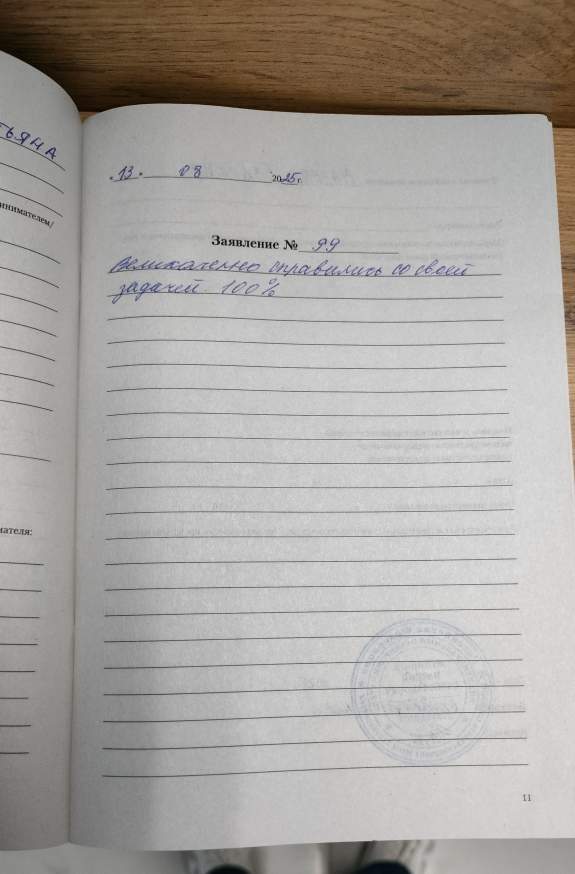 ТЬЯНА
инимателем/
мателя:
„13“ 08 2025 г.
Заявление № 99
Великолепно справились со своей
задачей 100%
11